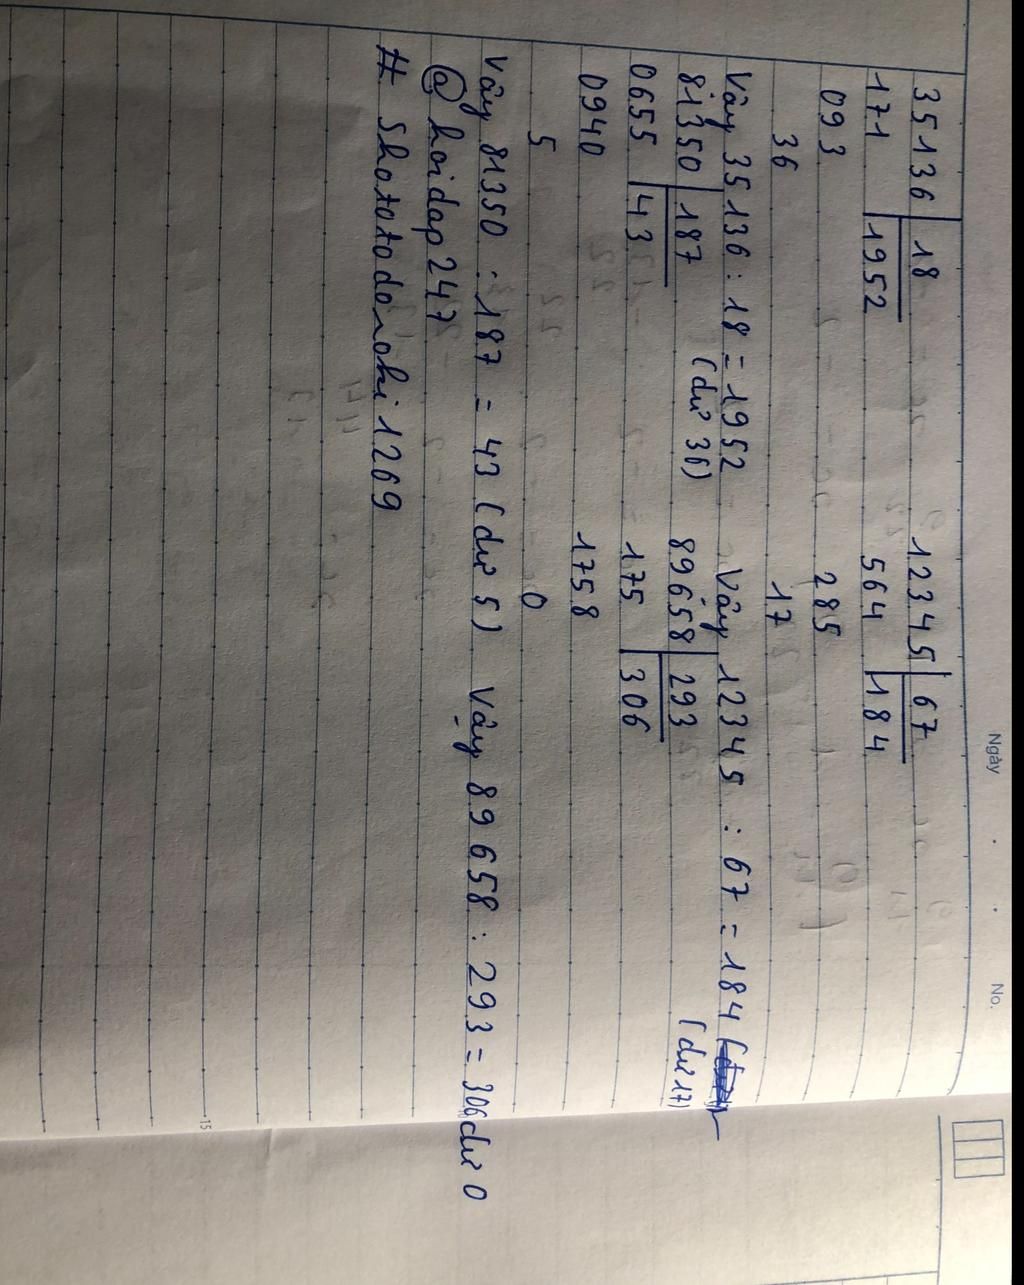 Ngày . . No.
35136 | 18 12345 | 67
171 | 1952 564 | 184
093 285
36 17
Vây 35136 : 18 = 1952 Vây 12345 : 67 = 184
(dư 36) (dư 17)
81350 | 187 89658 | 293
0655 | 43 175 | 306
0940 1758
5 0
Vây 81350 : 187 = 43 (dư 5) Vậy 89658 : 293 = 306 dư 0
@ hoidap247
# Shototodorohi1269
15